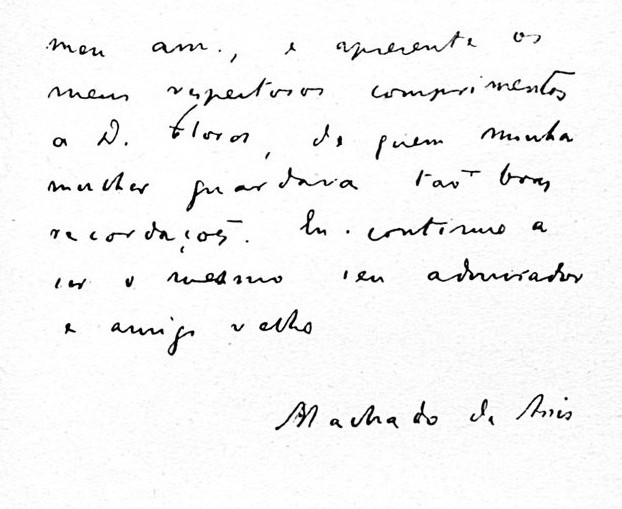 meu am., e apresente os
meus respeitosos comprimentos
a D. Flora, de quem minha
mulher guardava tão boas
recordações. Eu continuo a
ser o mesmo seu admirador
e amigo velho
Machado de Assis